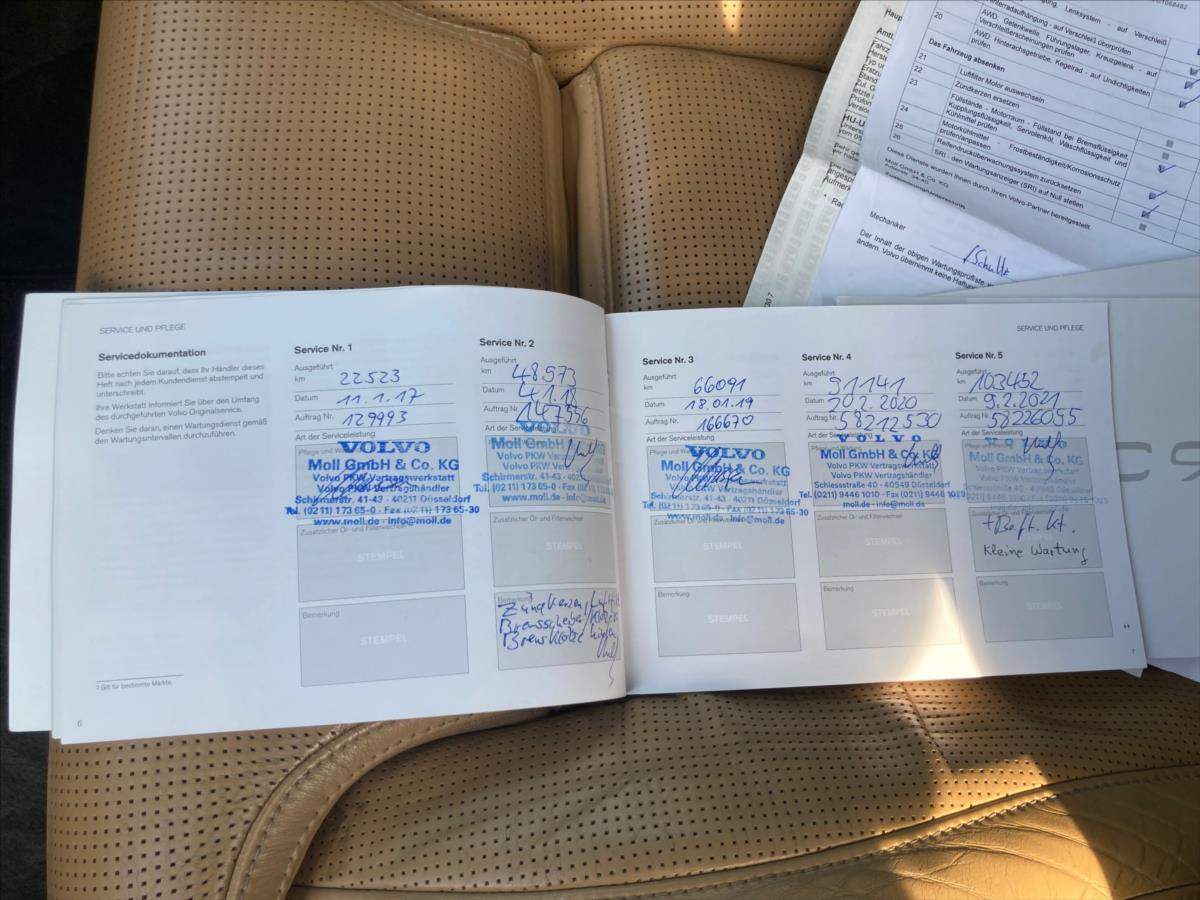 SERVICE UND PFLEGE
Servicedokumentation
Bitte achten Sie darauf, dass Ihr Händler dieses
Heft nach jedem Kundendienst abstempelt und
unterschreibt.
Ihre Werkstatt informiert Sie über den Umfang
des durchgeführten Volvo Originalservice.
Denken Sie daran, einen Wartungsdienst gemäß
den Wartungsintervallen durchzuführen.
2 Gilt für bestimmte Märkte.
6
Service Nr. 1
Ausgeführt
km 22523
Datum 11.1.17
Auftrag Nr. 129993
Art der Serviceleistung
Pflege und
VOLVO
Moll GmbH & Co. KG
Volvo PKW Vertragswerkstatt
Volvo PKW Vertragshändler
Schirmerstr. 41-43 · 40211 Düsseldorf
Tel. (0211) 173 65-0 · Fax (0211) 173 65-30
www.moll.de · info@moll.de
Zusätzlicher Öl- und Filterwechsel
STEMPEL
Bemerkung
STEMPEL
Service Nr. 2
Ausgeführt
km 48973
Datum 4.1.18
Auftrag Nr. 147556
Art der Serviceleistung
VOLVO
Moll GmbH
Volvo PKW Vertragswerkstatt
Volvo PKW Vertragshändler
Schirmerstr. 41-43 · 402
Tel. (0211) 173 65-0 · Fax (02
www.moll.de · info@mol
Zusätzlicher Öl- und Filterwechsel
STEMPEL
Bemerkung
Zündkerzen,
SERVICE UND PFLEGE
Service Nr. 3
Ausgeführt
km 66091
Datum 18.01.19
Auftrag Nr. 166670
Art der Serviceleistung
Pflege und
VOLVO
Moll GmbH & Co. KG
Volvo PKW Vertragswerkstatt
Volvo PKW Vertragshändler
Schirmerstr. 41-43 · 40211 Düsseldorf
Tel. (0211) 173 65-0 · Fax (0211) 173 65-30
www.moll.de · info@moll.de
Zusätzlicher Öl- und Filterwechsel
STEMPEL
Bemerkung
STEMPEL
Service Nr. 4
Ausgeführt
km 91141
Datum 20.2.2020
Auftrag Nr. 58212530
Art der Serviceleistung
VOLVO
Moll GmbH & Co. KG
Volvo PKW Vertragswerkstatt
Volvo PKW Vertragshändler
Schiessstraße 40 - 40549 Düsseldorf
Tel. (0211) 9446 1010 - Fax (0211) 9446 1029
moll.de · info@moll.de
Zusätzlicher Öl- und Filterwechsel
STEMPEL
Bemerkung
STEMPEL
Service Nr. 5
Ausgeführt
km 103452
Datum 9.2.2021
Auftrag Nr. 58226055
Art der Serviceleistung
Co. KG
Kleine Wartung
Bemerkung
STEMPEL
7
20
Hinterradaufhängung - auf Verschleiß überprüfen
AWD: Gelenkwelle, Führungslager, Kreuzgelenk - auf
Verschleißerscheinungen prüfen
AWD: Hinterachsgetriebe, Kegelrad - auf Undichtigkeiten
prüfen
Das Fahrzeug absenken
21
22 Luftfilter Motor auswechseln
23 Zündkerzen ersetzen
24 Füllstände - Motorraum - Füllstand bei Bremsflüssigkeit,
Kupplungsflüssigkeit, Servolenköl, Waschflüssigkeit und
Kühlmittel prüfen
25 Motorkühlmittel - Frostbeständigkeit/Korrosionsschutz
prüfen/anpassen
26 Reifendrucküberwachungssystem zurücksetzen
SRI - den Wartungsanzeiger (SRI) auf Null stellen
Diese Dienste wurden Ihnen durch Ihren Volvo-Partner bereitgestellt
Moll GmbH & Co. KG
Mechaniker
Schultz
Der Inhalt der obigen Wartungsprüfliste
ändern. Volvo übernimmt keine Haftung